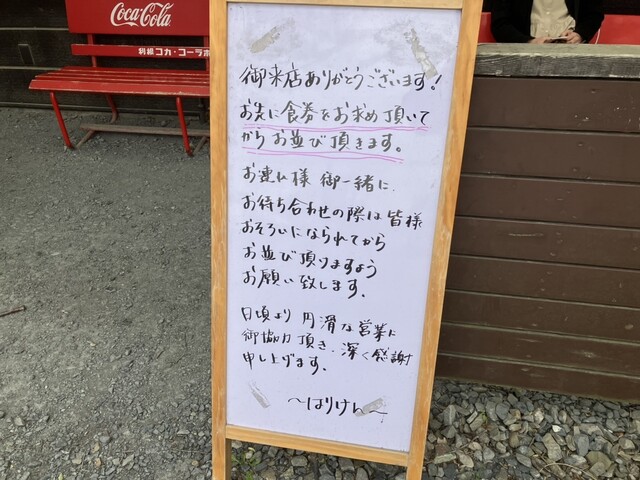 Coca-Cola
利根コカ・コーラボ
御来店ありがとうございます!
お先に食券をお求め頂いて
からお並び頂きます。
お連れ様 御一緒に、
お待ち合わせの際は皆様
おそろいになられてから
お並び頂りますよう
お願い致します。
日頃より円滑な営業に
御協力頂き、深く感謝
申し上げます。
〜はりけん〜